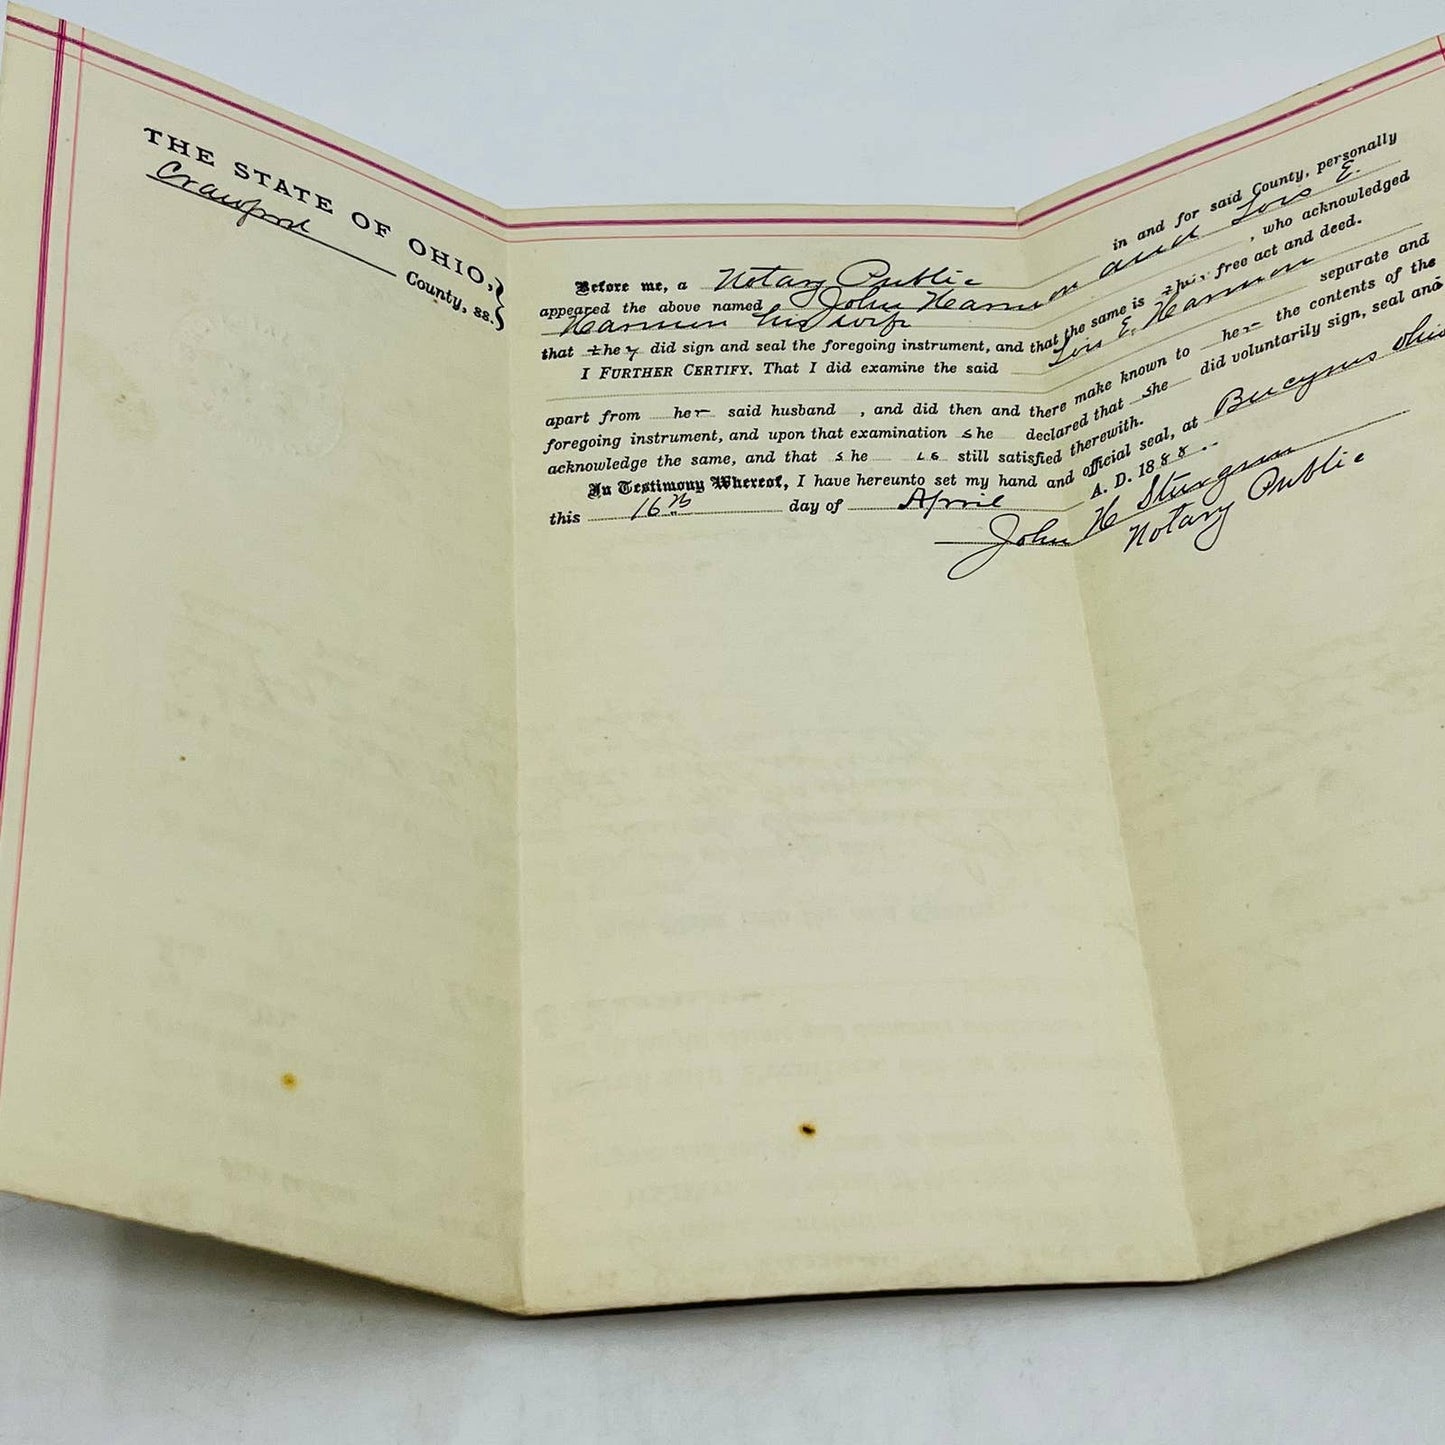 THE STATE OF OHIO,
Crawford County, ss.
Before me, a Notary Public in and for said County, personally
appeared the above named John Harmon and Lois E.
Harmon his wife, who acknowledged
that they did sign and seal the foregoing instrument, and that the same is their free act and deed.
I FURTHER CERTIFY, That I did examine the said Lois E. Harmon separate and
apart from her said husband, and did then and there make known to her the contents of the
foregoing instrument, and upon that examination she declared that she did voluntarily sign, seal and
acknowledge the same, and that she is still satisfied therewith.
In Testimony Whereof, I have hereunto set my hand and official seal, at Bucyrus Ohio
this 16th day of April A. D. 1888.
John H
Notary Public